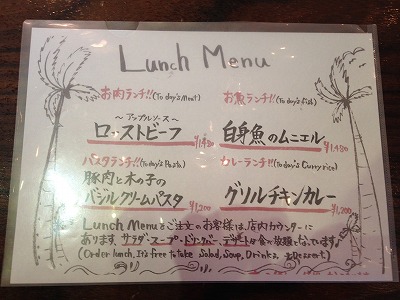 Lunch Menu
お肉ランチ!!(Today's Meat)
〜アップルソース〜
ローストビーフ
¥1,480
お魚ランチ!!(Today's fish)
白身魚のムニエル
¥1,480
パスタランチ!!(Today's Pasta)
豚肉と木の子の
バジルクリームパスタ
¥1,200
カレーランチ!!(Today's Curry rice)
グリルチキンカレー
¥1,200
Lunch Menuをご注文のお客様は、店内カウンターに
あります、サラダ・スープ・ドリンクバー、デザートは食べ放題となっています♪
(Order lunch. It's free to take Salad, Soup, Drinks, & Dessert)